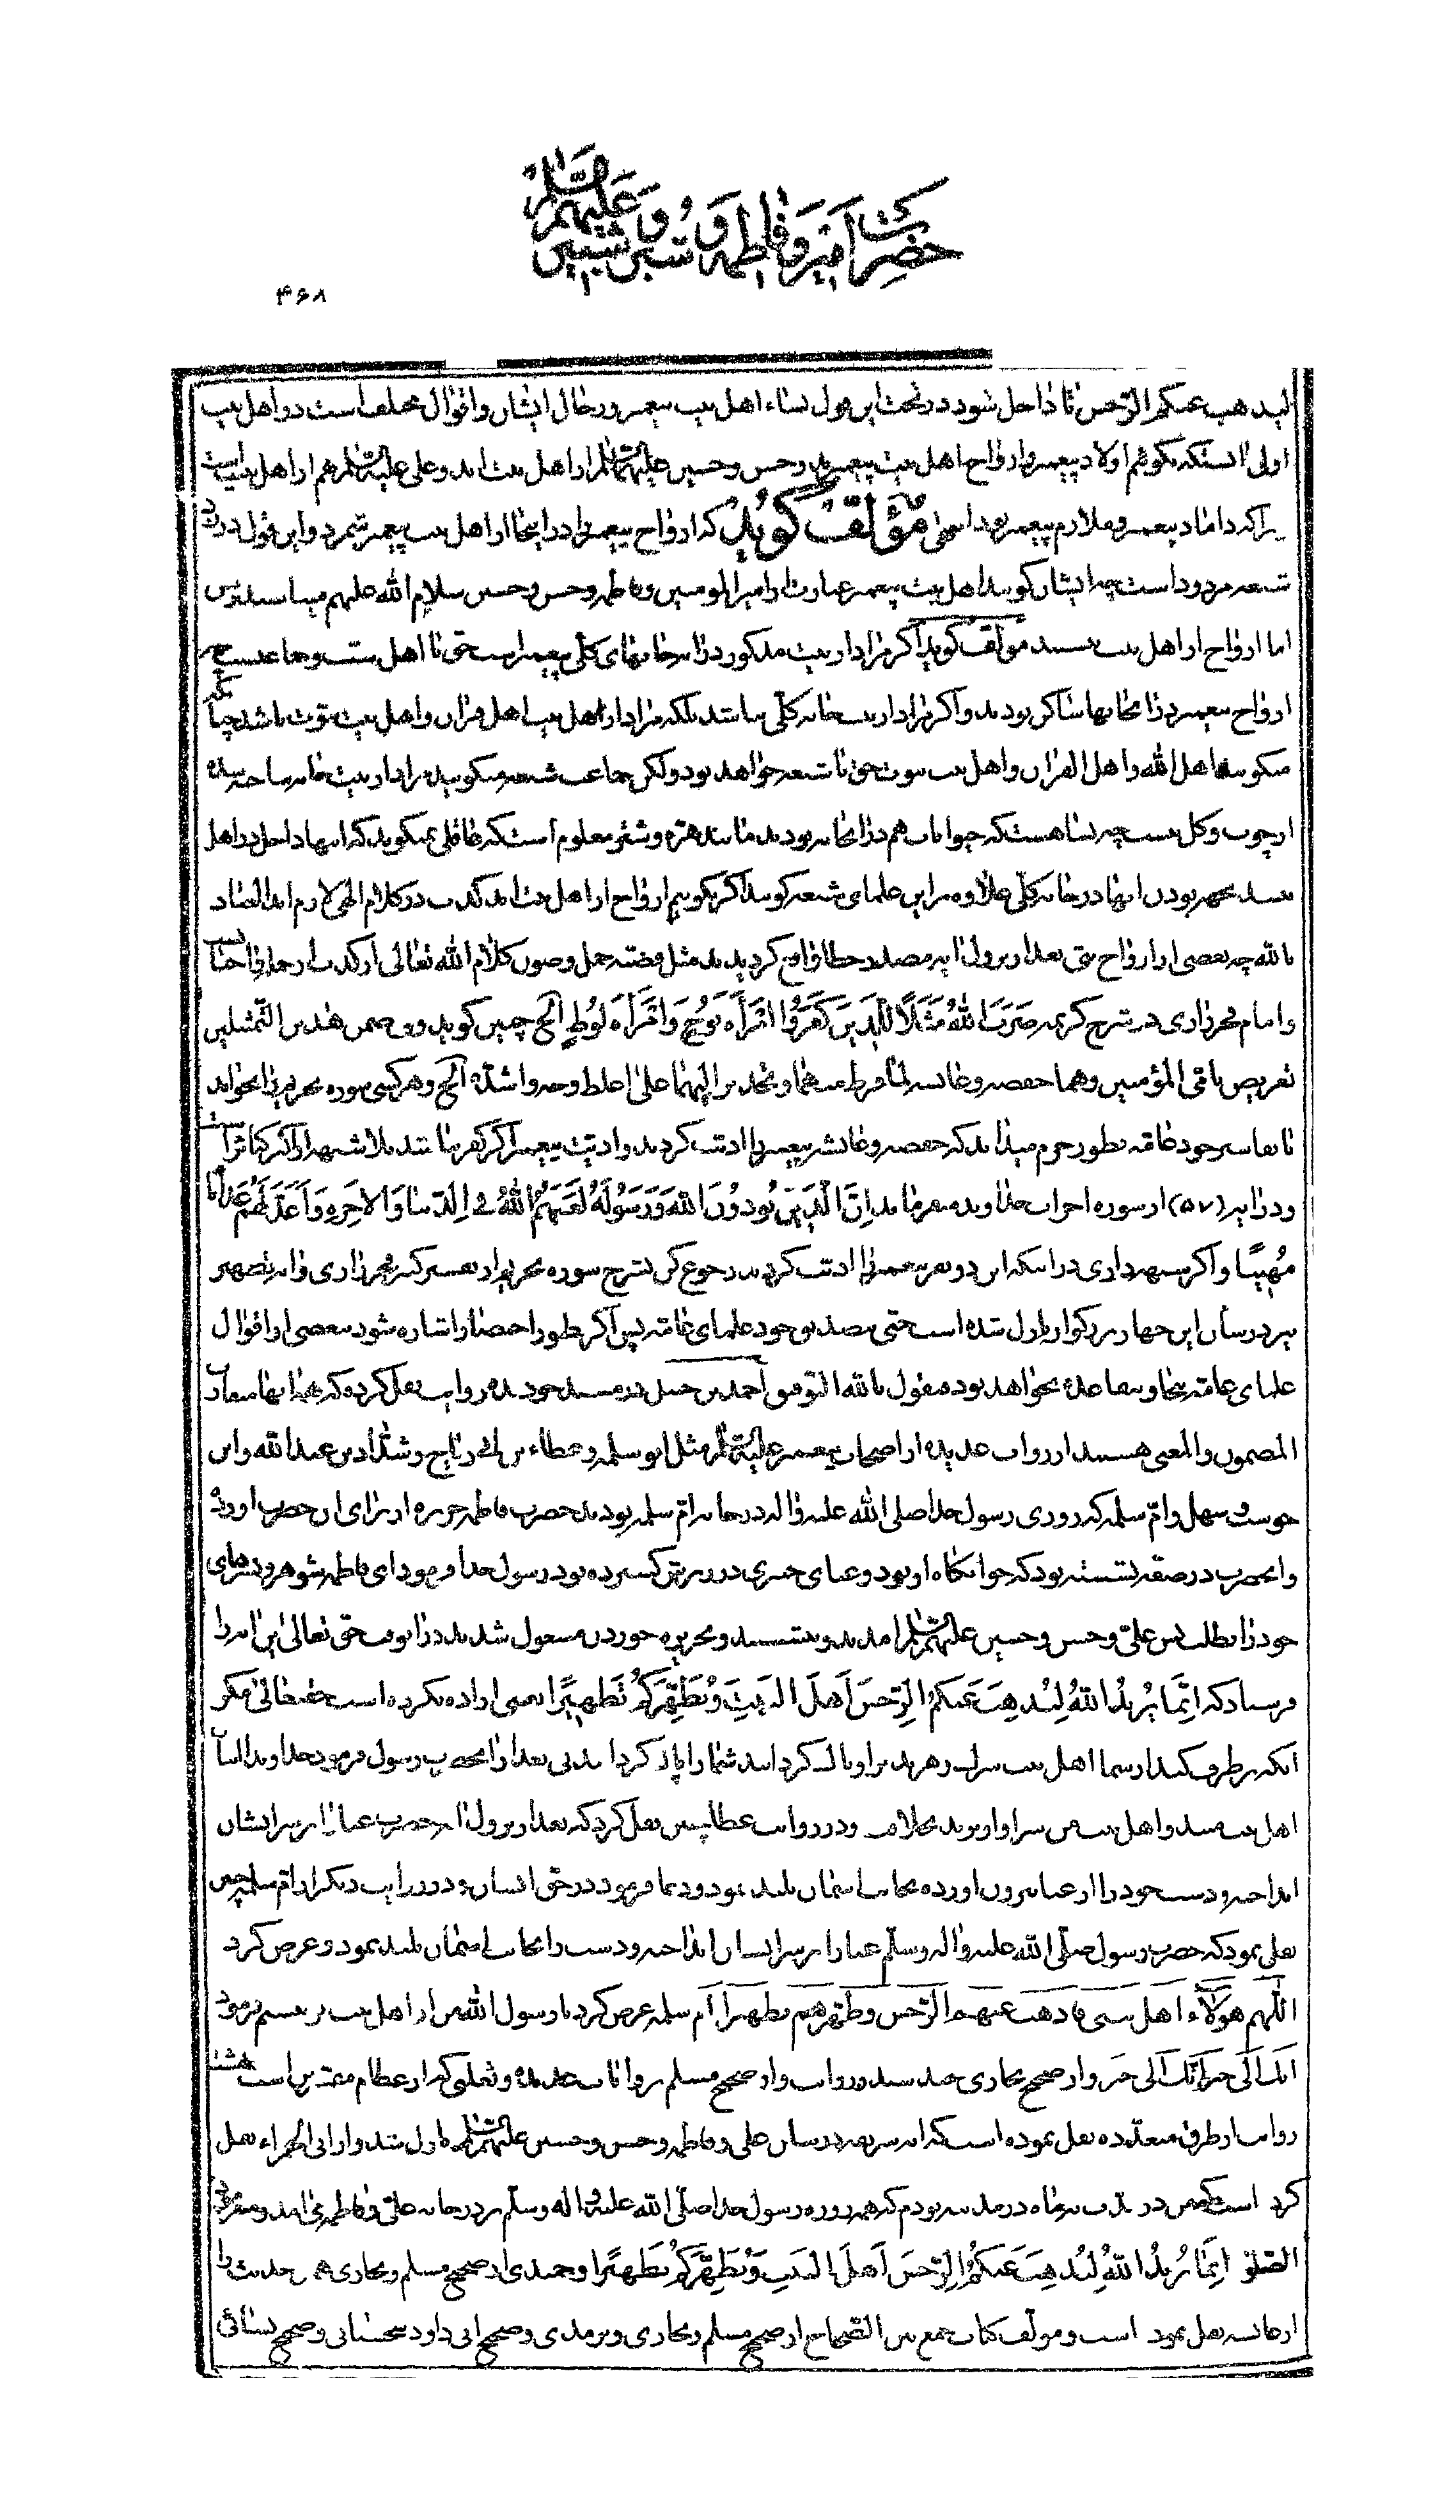 حضرت امیر و فاطمه و شبر و شبیر علیهم السلام
۴۶۸
لیذهب عنکم الرجس تا داخل شود در تحت این قول نساء اهل بیت پیغمبر و رجال ایشان و اقوال مختلف است در اهل بیت
اولی آنستکه بگوئیم اولاد پیغمبر و ازواج اهل بیت پیغمبرند و حسن و حسین علیهما السلام از اهل بیت اند و علی علیه السلام هم از اهل بیت است
زیراکه داماد پیغمبر و ملازم پیغمبر بود انتهی مؤلف گوید که ازواج پیغمبر را در اینجا از اهل بیت پیغمبر شمرد و این قول در نزد
شیعه مردود است چه ایشان گویند اهل بیت پیغمبر عبارت از امیر المومنین و فاطمه و حسن و حسین سلام الله علیهم میباشند و بس
اما ازواج از اهل بیت نیستند مولف گوید اگر مراد از بیت مذکور در آیه خانهای گلی پیغمبر است حق با اهل سنت و جماعتست چه
ازواج پیغمبر در آنخانها ساکن بودند و اگر مراد از بیت خانه گلی نباشد بلکه مراد از اهل بیت اهل قرآن و اهل بیت نبوت باشد چنانکه
میگویند اهل الله و اهل القرآن و اهل بیت نبوت حق با شیعه خواهد بود ولکن جماعت شیعه میگویند مراد از بیت خانه ساخته شده
از چوب و گل نیست چه بسا هست که حیوانات هم در آنخانه بودند مانند هره و شتر معلوم است که عاقلی نمیگوید که اینها داخل در اهل
بیتند بجهه بودن اینها در خانه گلی علاوه بر این علمای شیعه گویند اگر بگوئیم ازواج از اهل بیت اند کذب در کلام الهی لازم آید العیاذ
بالله چه بعضی از ازواج نبی بعد از نزول آیه مصدر خطا واقع گردیدند مثل قضیه جمل و صون کلام الله تعالی از کذب از جمله واجبات است
و امام فخر رازی در شرح کریمه ضَرَبَ اللهُ مَثَلًا لِلَّذینَ کَفَرُوا امْرَأَهَ نُوحٍ وَ امْرَأَهَ لُوطٍ الخ چنین گوید و فی ضمن هذین التمثیلین
تعریض بامی المؤمنین و هما حفصه و عایشه لما فرط منهما و تحذیر الیهما علی اغلظ وجه و اشده الخ و هر کسی سوره تحریم را بخواند
با تفاسیر خود عامه بطور جزم میداند که حفصه و عایشه پیغمبر را اذیت کردند و اذیت پیغمبر اگر کفر نباشد بلا شبهه از اکبر کبائر است
و در آیه (۵۷) از سوره احزاب خداوند میفرماید اِنَّ الَّذینَ یُؤْذُونَ اللهَ وَ رَسُولَهُ لَعَنَهُمُ اللهُ فِی الدُّنیا وَ الآخِرَهِ وَ اَعَدَّ لَهُمْ عَذاباً
مُهیناً و اگر شبهه داری در اینکه این دو نفر پیغمبر را اذیت کردند رجوع کن بشرح سوره تحریم از تفسیر کبیر فخر رازی و آیه تطهیر
نیز در شان این چهار بزرگوار نازل شده است حتی بتصدیق خود علمای عامه پس اگر بطور اختصار اشاره شود ببعضی از اقوال
علمای عامه بیجا و بیفایده نخواهد بود فنقول بالله التوفیق احمد بن حنبل در مسند خود چند روایت نقل کرده که همه اینها متقارب
المضمون والمعنی هستند از روایت عدیده از اصحاب پیغمبر علیه السلام مثل ابو سلمه و عطاء بن ابی رباح و شداد بن عبد الله و ابن
حوشب و سهل و ام سلمه که روزی رسول خدا صلی الله علیه و آله در خانه ام سلمه بودند حضرت فاطمه حریره از برای آن حضرت آورده
و آنحضرت در صفه نشسته بود که خوابگاه او بود و عبای خیبری در زیرش گسترده بود رسول خدا فرمود ای فاطمه شوهر و پسرهای
خود را بطلب پس علی و حسن و حسین علیهم السلام آمدند و نشستند و بحریره خوردن مشغول شدند در آنوقت حق تعالی این آیه را
فرستاد که اِنَّما یُریدُ اللهُ لِیُذْهِبَ عَنْکُمُ الرِّجْسَ اَهْلَ الْبَیْتِ وَ یُطَهِّرَکُمْ تَطْهیراً یعنی اراده نکرده است حقتعالی مگر
آنکه برطرف کند از شما اهل بیت
اهل بیت منند و اهل بیت من سزاوارترند و در روایت عطا چنین نقل کرد که بعد از نزول آیه حضرت عبا را بر سر ایشان
انداخت و دست خود را از عبا بیرون آورده بجانب آسمان بلند نمود و دعا فرمود در حق ایشان و در روایت دیگر از ام سلمه چنین
نقل نمود که حضرت رسول صلی الله علیه و اله و سلم عبا را بر سر ایشان انداخت و دست را بجانب آسمان بلند نمود و عرض کرد
اللهم هؤلاء اهل بیتی فاذهب عنهم الرجس و طهرهم تطهیرا ام سلمه عرض کرد یا رسول الله من از اهل بیت نیستم فرمود
انک الی خیر انک الی خیر و از صحیح بخاری چند سند و روایت و از صحیح مسلم روایات عدیده و ثعلبی که از عظام مفسرین است
روایت از طرق متعدده نقل نموده است که آیه شریفه در شان علی و فاطمه و حسن و حسین علیهم السلام نازل شد و از ابی الحمراء نقل
کرده است که من در مدینه بودم که همه روزه رسول خدا صلی الله علیه و آله و سلم بر در خانه علی و فاطمه می آمد و میفرمود
الصلوة اِنَّما یُریدُ اللهُ لِیُذْهِبَ عَنْکُمُ الرِّجْسَ اَهْلَ الْبَیْتِ وَ یُطَهِّرَکُمْ تَطْهیراً و حمیدی از صحیح مسلم و بخاری همین حدیث را
از عایشه نقل نموده است و مولف کتاب جمع بین الصحاح از صحیح مسلم و بخاری و ترمذی و صحیح ابی داود سجستانی و صحیح نسائی